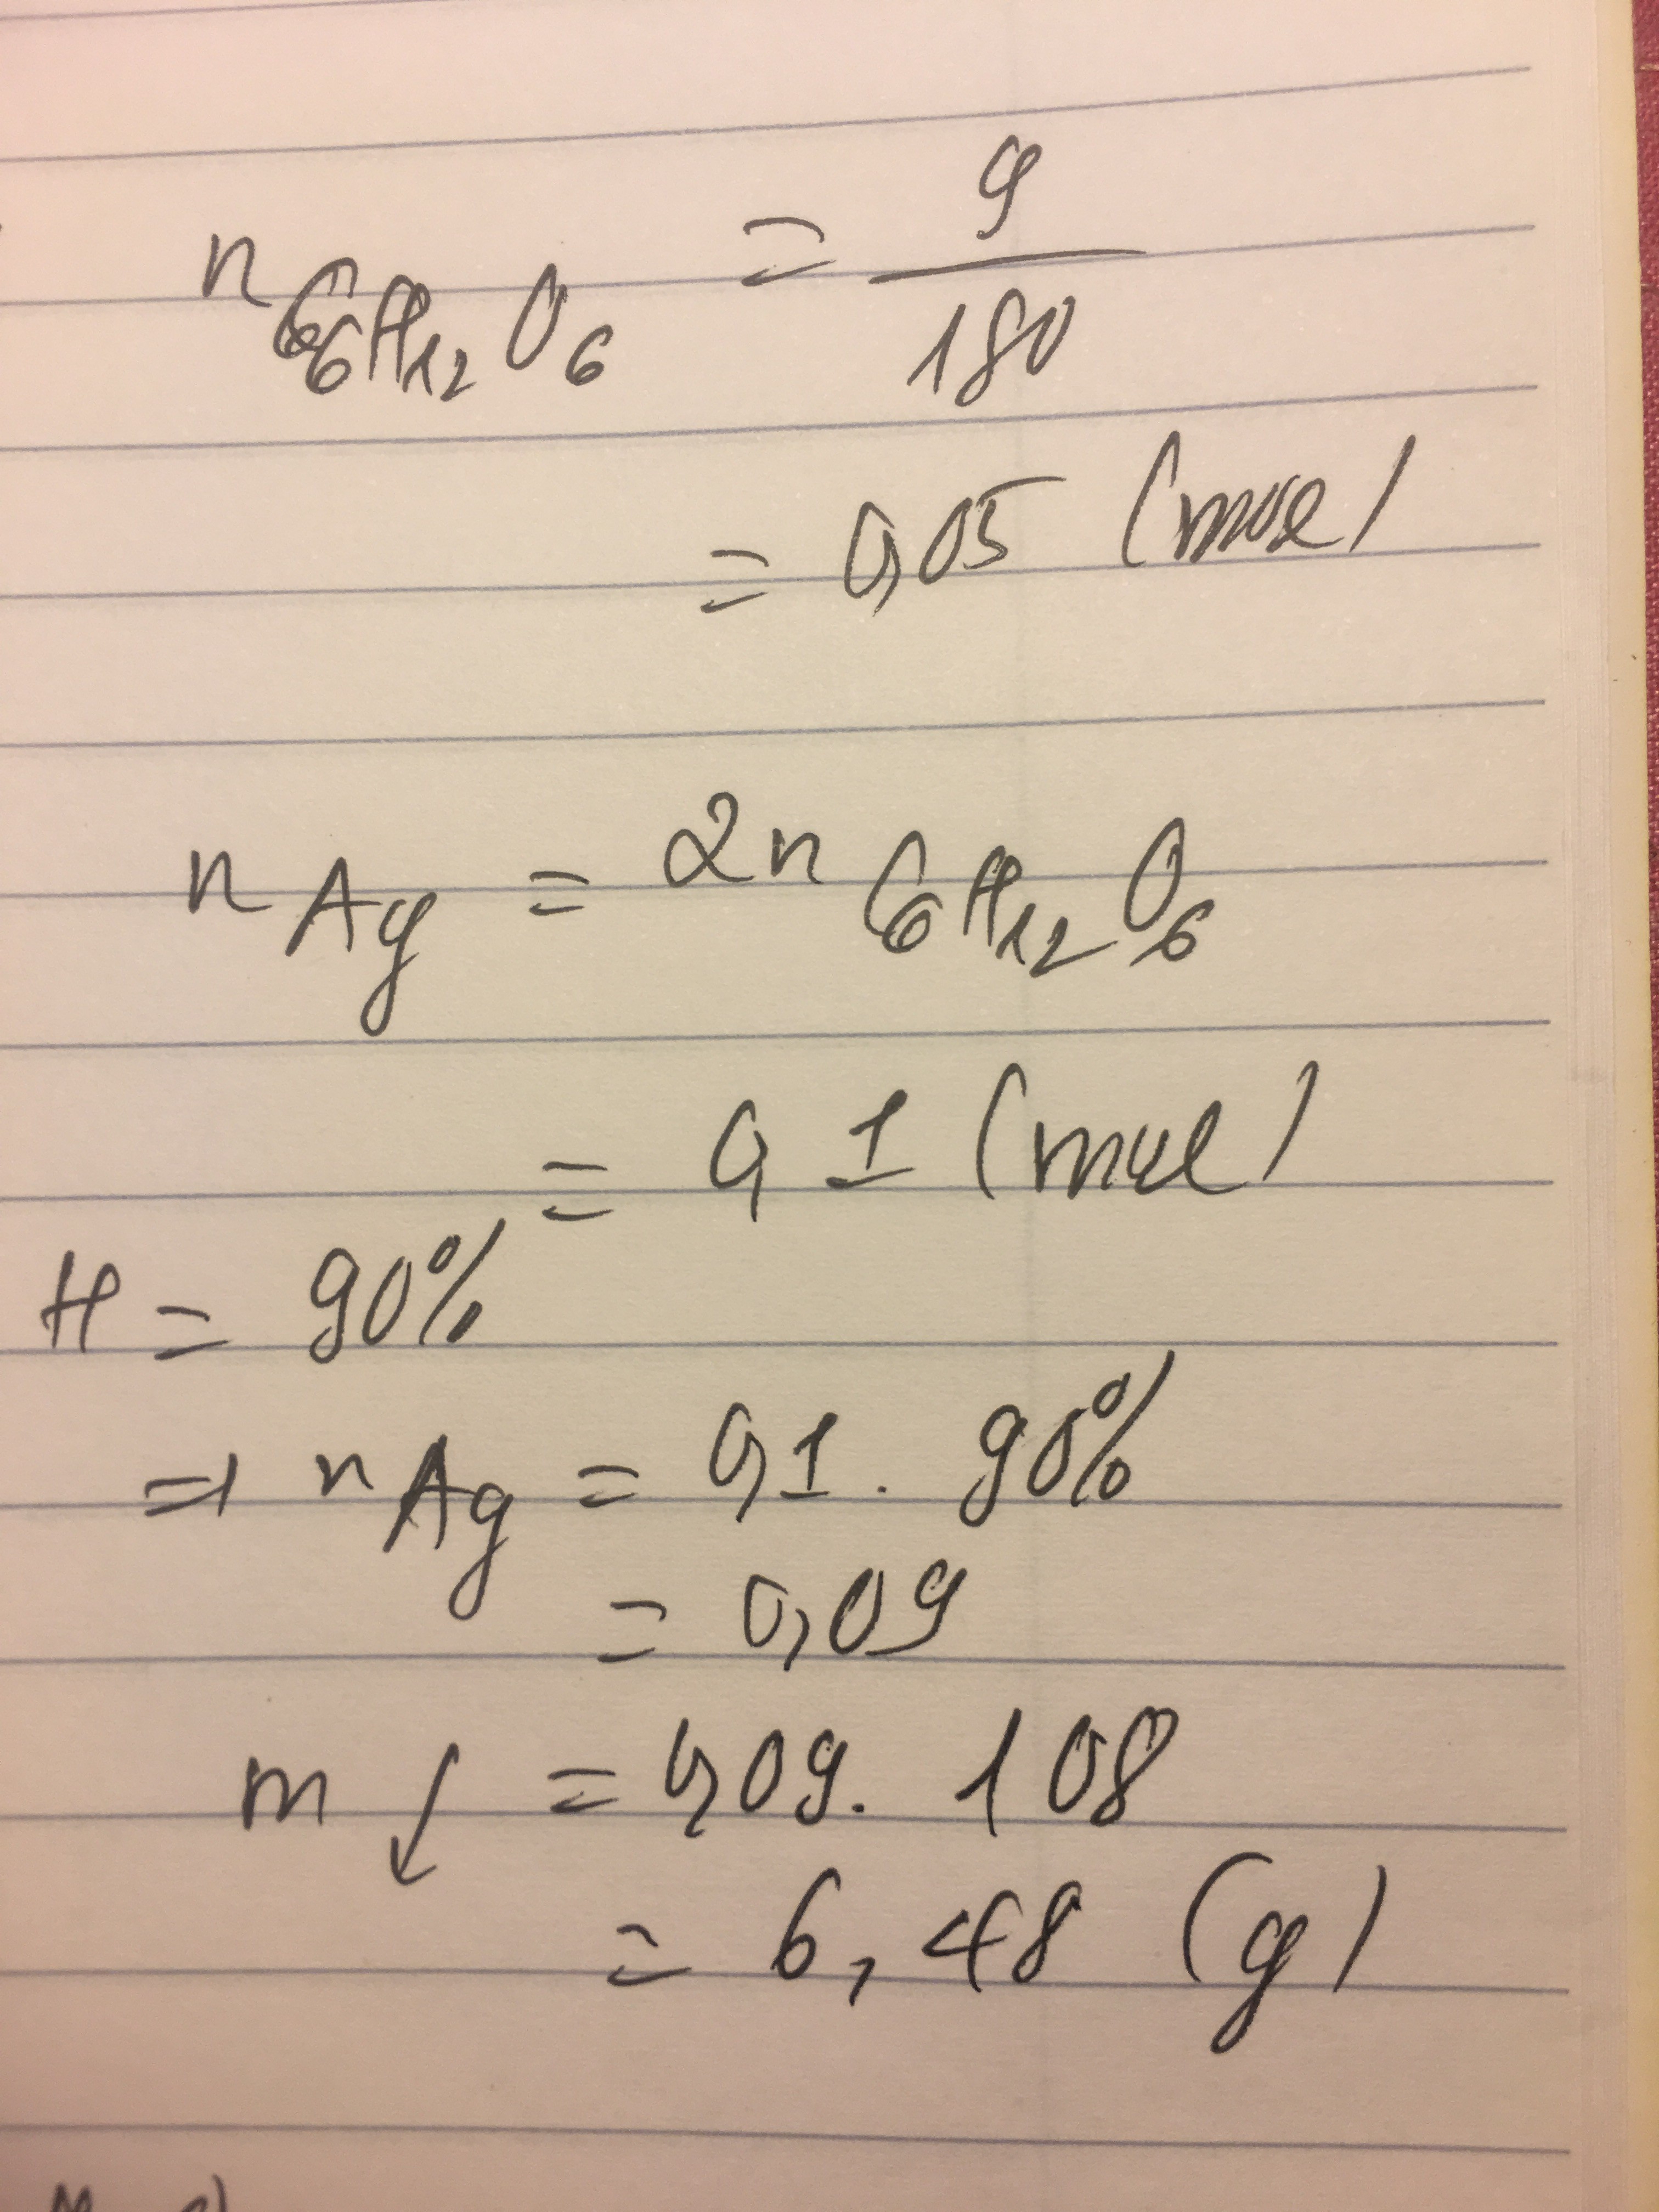 n C6H12O6 = 9/180
= 0,05 (mol)
n Ag = 2n C6H12O6
= 0,1 (mol)
H = 90%
⇒ n Ag = 0,1 . 90%
= 0,09
m ↓ = 0,09. 108
= 6,48 (g)